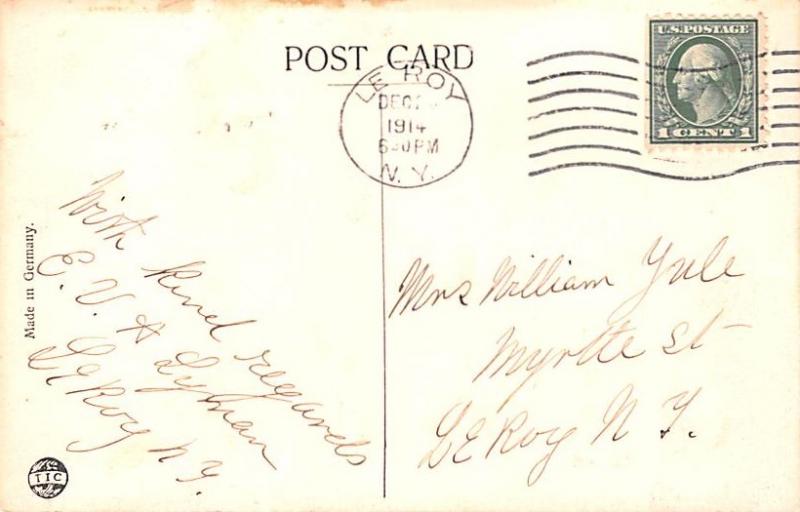 POST CARD
LE ROY
DEC
1914
6 PM
N.Y.
U.S. POSTAGE
1 CENT 1
With kind regards
E. V. & Lyman
LeRoy N.Y.
Made in Germany.
TIC
Mrs William Yule
Myrtle St
LeRoy N Y.